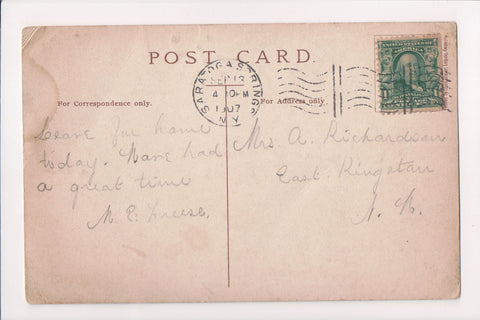 POST CARD.
SARATOGA SPRINGS
SEP 13
4 30 PM
1907
N.Y.
For Correspondence only.
For Address only
Leave for home
today. Have had
a great time
M. E. Freese.
Mrs. A. Richardson
East Kingston
N. H.